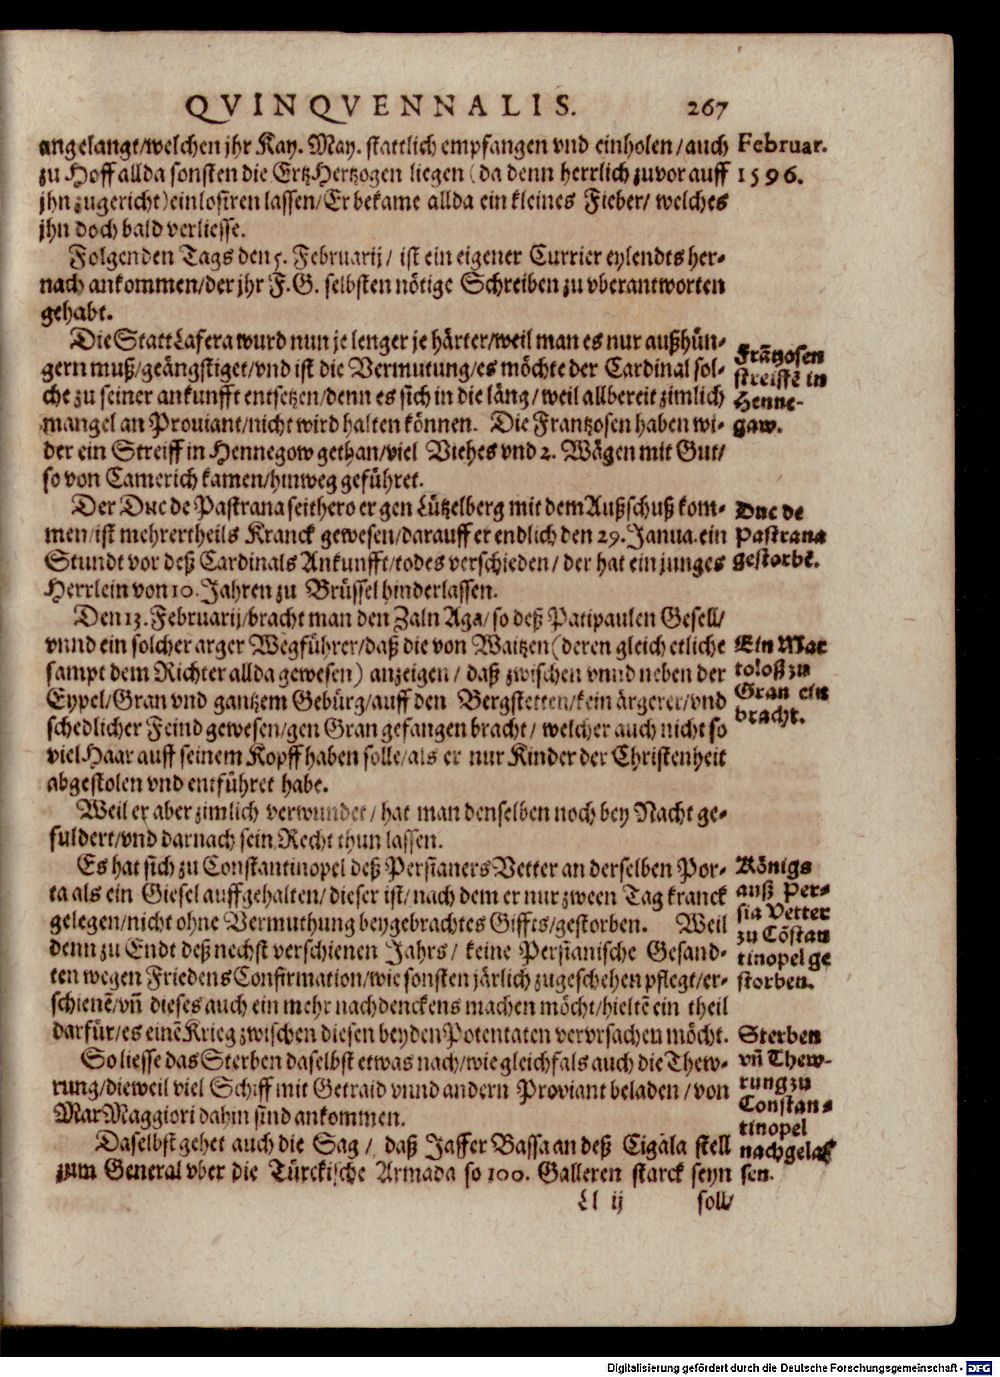 QVINQVENNALIS. 267
angelangt/welchen jhr Kay. May. stattlich empfangen vnd einholen/auch
zu Hoff allda sonsten die ErtzHertzogen liegen (da denn herrlich zuvor auff
jhn zugericht) einlosiren lassen/Er bekame allda ein kleines Fieber/ welches
jhn doch bald verliesse.
Februar.
1596.
Folgenden Tags den 5. Februarij/ ist ein eigener Currier eylendts her-
nach ankommen/der jhr F.G. selbsten nötige Schreiben zu vberantworten
gehabt.
Die Statt Lafera wurd nun je lenger je härter/weil man es nur außhün-
gern muß/geängstiget/vnd ist die Vermutung/es möchte der Cardinal sol-
che zu seiner ankunfft entsetzen/denn es sich in die läng/weil allbereit zimlich
mangel an Prouiant/nicht wird halten können. Die Frantzosen haben wi-
der ein Streiff in Hennegow gethan/viel Viehes vnd 2. Wägen mit Gut/
so von Camerich kamen/hinweg geführet.
Frãtzosen
streiffẽ in
Henne-
gaw.
Der Duc de Pastrana seithero er gen Lützelberg mit dem Außschuß kom-
men/ist mehrertheils Kranck gewesen/darauff er endlich den 29. Janua. ein
Stundt vor deß Cardinals Ankunfft/todes verschieden/ der hat ein junges
Herrlein von 10. Jahren zu Brüssel hinderlassen.
Duc de
Pastrana
gestorbẽ.
Den 13. Februarij/bracht man den Zaln Aga/so deß Patipaulen Gesell/
vnnd ein solcher arger Wegführer/daß die von Waitzen (deren gleich etliche
sampt dem Richter allda gewesen) anzeigen/ daß zwischen vnnd neben der
Eypel/Gran vnd gantzem Gebürg/auff den Bergstetten/kein ärgerer/vnd
schedlicher Feind gewesen/gen Gran gefangen bracht/ welcher auch nicht so
viel Haar auff seinem Kopff haben solle/als er nur Kinder der Christenheit
abgestolen vnd entführet habe.
Ein Mar
toloß zu
Gran ein
bracht.
Weil er aber zimlich verwundet/ hat man denselben noch bey Nacht ge-
fuldert/vnd darnach sein Recht thun lassen.
Es hat sich zu Constantinopel deß Persianers Vetter an derselben Por-
ta als ein Giesel auffgehalten/dieser ist/nach dem er nur zween Tag kranck
gelegen/nicht ohne Vermuthung beygebrachtes Giffts/gestorben. Weil
denn zu Endt deß nechst verschienen Jahrs/ keine Persianische Gesand-
ten wegen Friedens Confirmation/wie sonsten järlich zugeschehen pflegt/er-
schienẽ/vñ dieses auch ein mehr nachdenckens machen möcht/hieltẽ ein theil
darfür/es einẽ Krieg zwischen diesen beyden Potentaten vervrsachen möcht.
Königs
auß Per-
sia Vetter
zu Cõstan
tinopel ge
storben.
So liesse das Sterben daselbst etwas nach/wie gleichfals auch die Thew-
rung/dieweil viel Schiff mit Getraid vnnd andern Proviant beladen/von
Mar Maggiori dahin sind ankommen.
Daselbst gehet auch die Sag/ daß Jaffer Bassa an deß Cigala stell
zum General vber die Türckische Armada so 100. Galleren starck seyn
Sterben
vñ Thew-
rung zu
Constan-
tinopel
nachgelas
sen.
Ll ij soll/
Digitalisierung gefördert durch die Deutsche Forschungsgemeinschaft - DFG